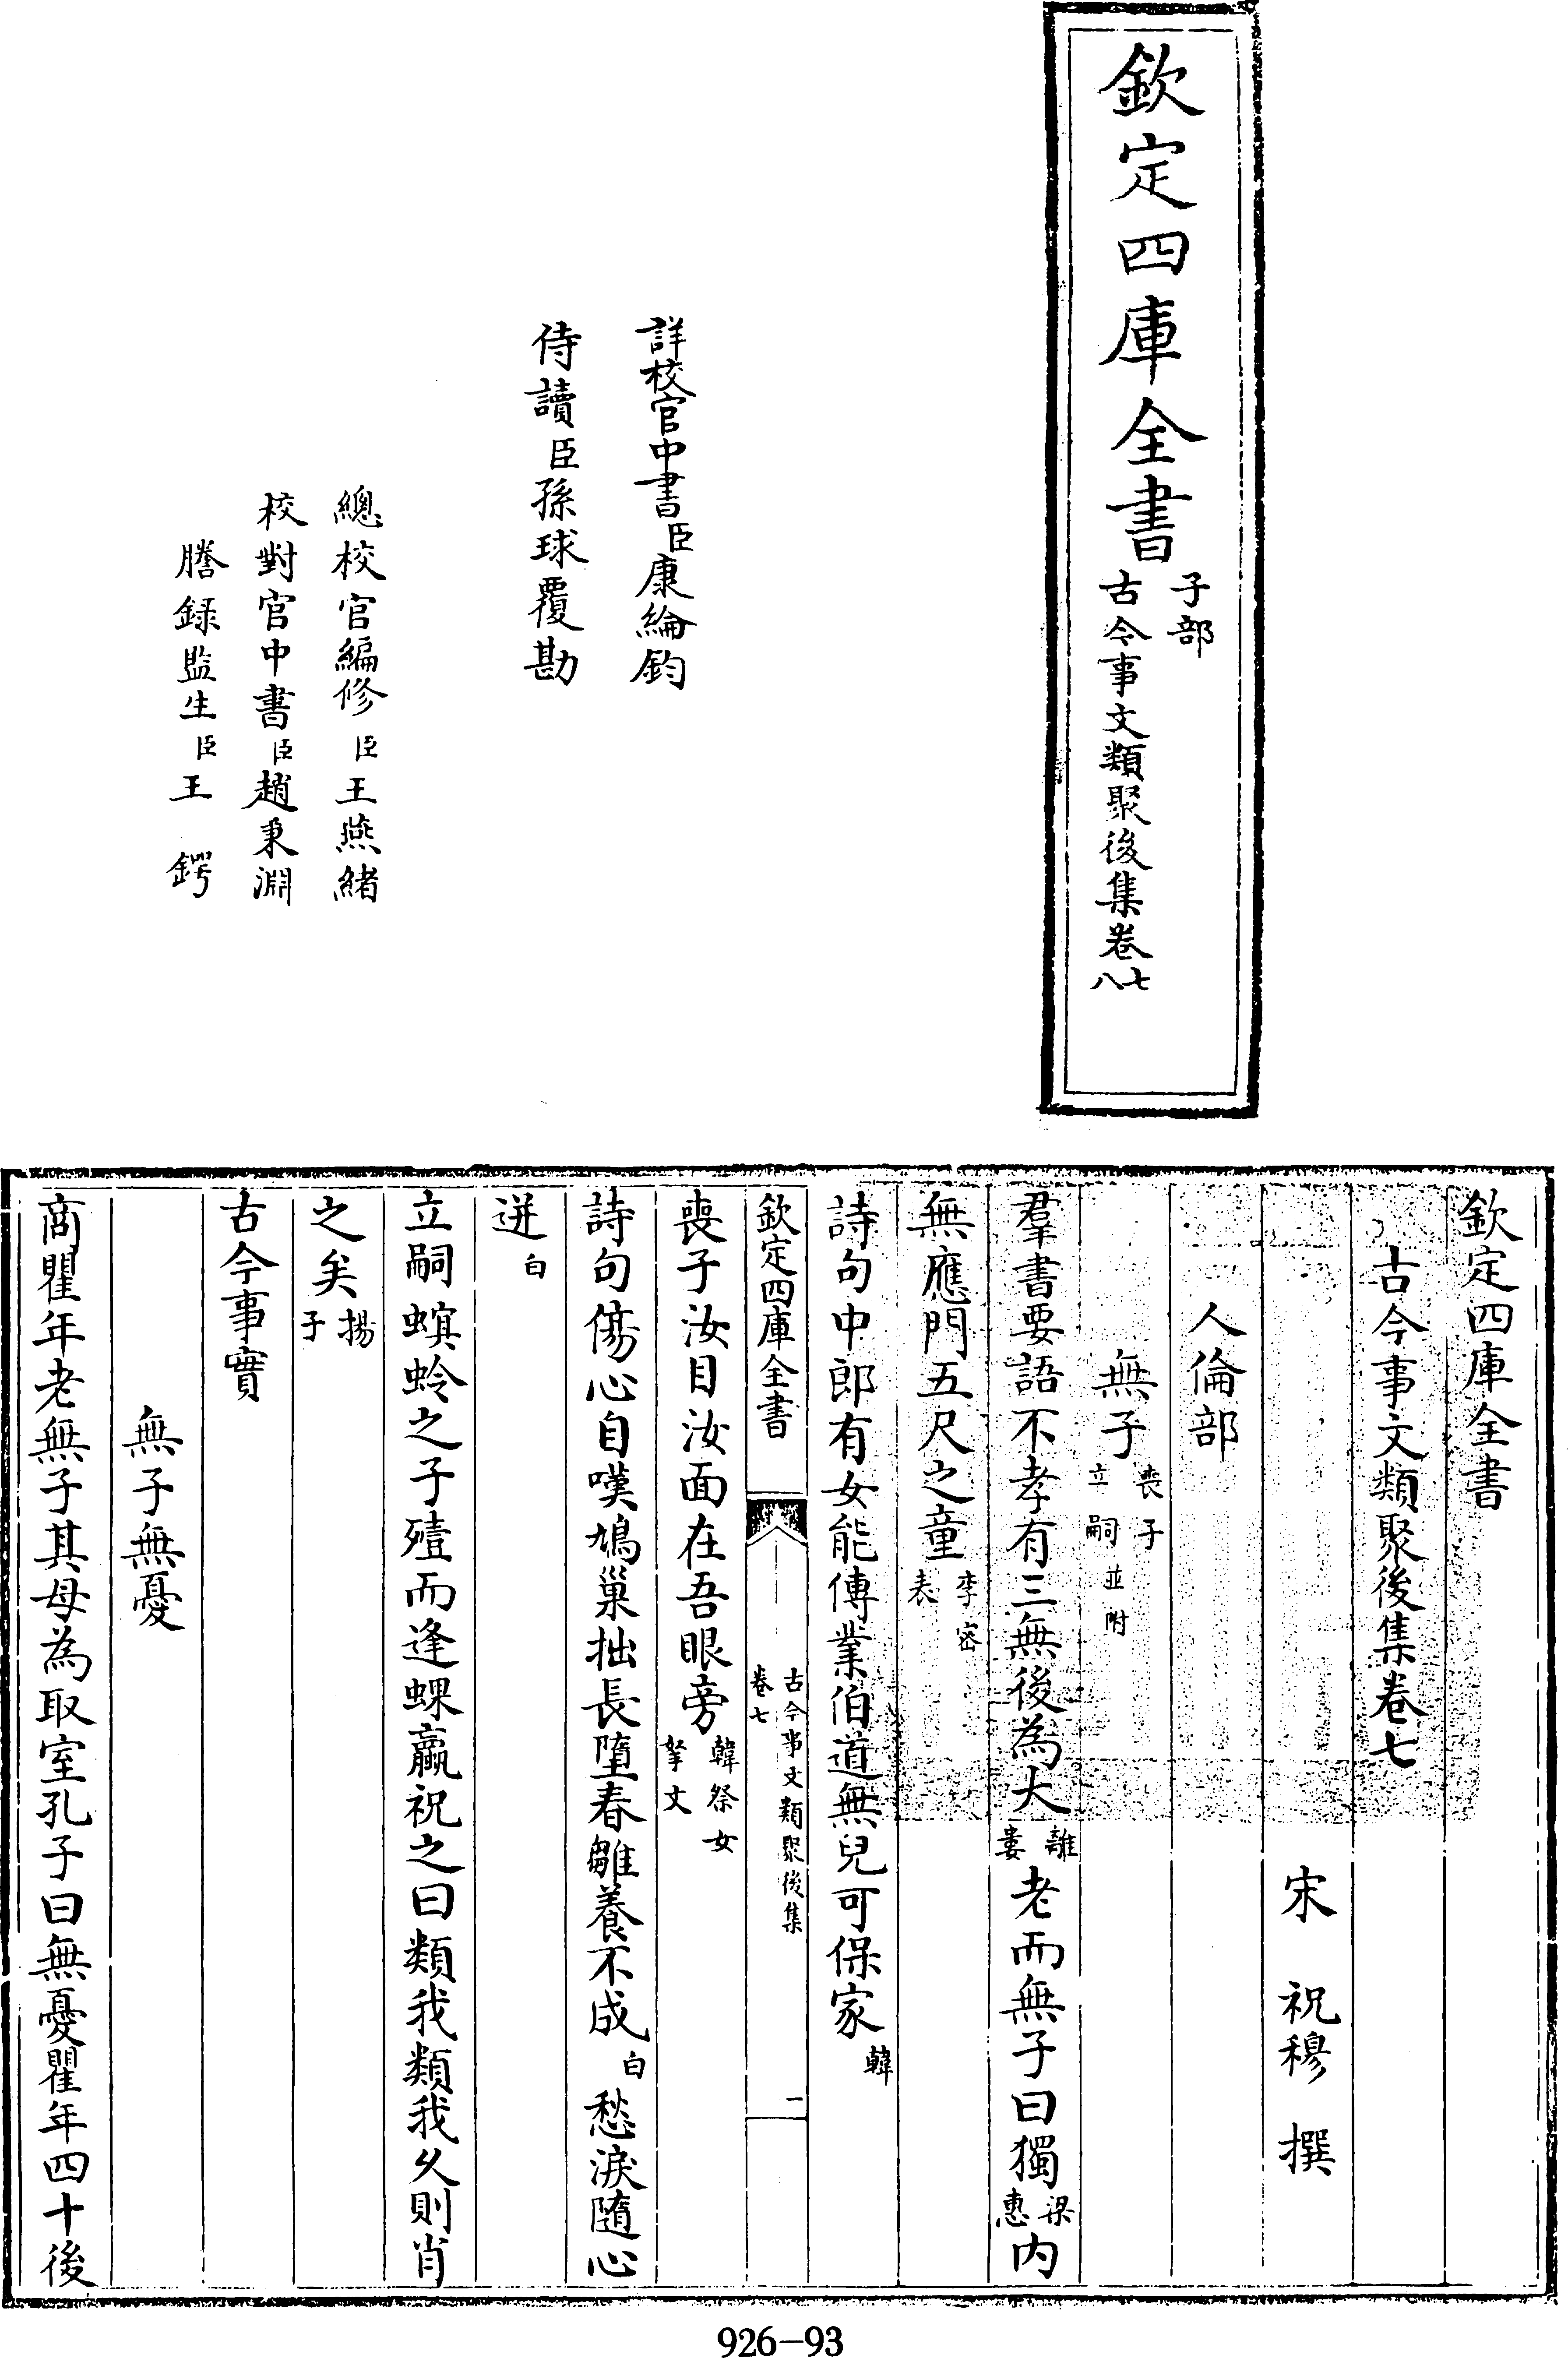 欽定四庫全書
子部
古今事文類聚後集卷七八
詳校官中書臣康綸鈞
侍讀臣孫球覆勘
總校官編修臣王燕緒
校對官中書臣趙秉淵
謄録監生臣王鍔
欽定四庫全書
古今事文類聚後集卷七
宋 祝穆 撰
人倫部
無子喪子立嗣並附
羣書要語不孝有三無後為大離婁老而無子曰獨梁惠内
無應門五尺之童李密表
詩句中郎有女能傳業伯道無兒可保家韓
欽定四庫全書
古今事文類聚後集
卷七
一
喪子汝目汝面在吾眼旁韓祭女挐文
詩句傷心自嘆鳩巢拙長墮春雛養不成白愁淚隨心
迸白
立嗣螟蛉之子殪而逢蜾蠃祝之曰類我類我久則肖
之矣揚子
古今事實
無子無憂
商瞿年老無子其母為取室孔子曰無憂瞿年四十後
926-93